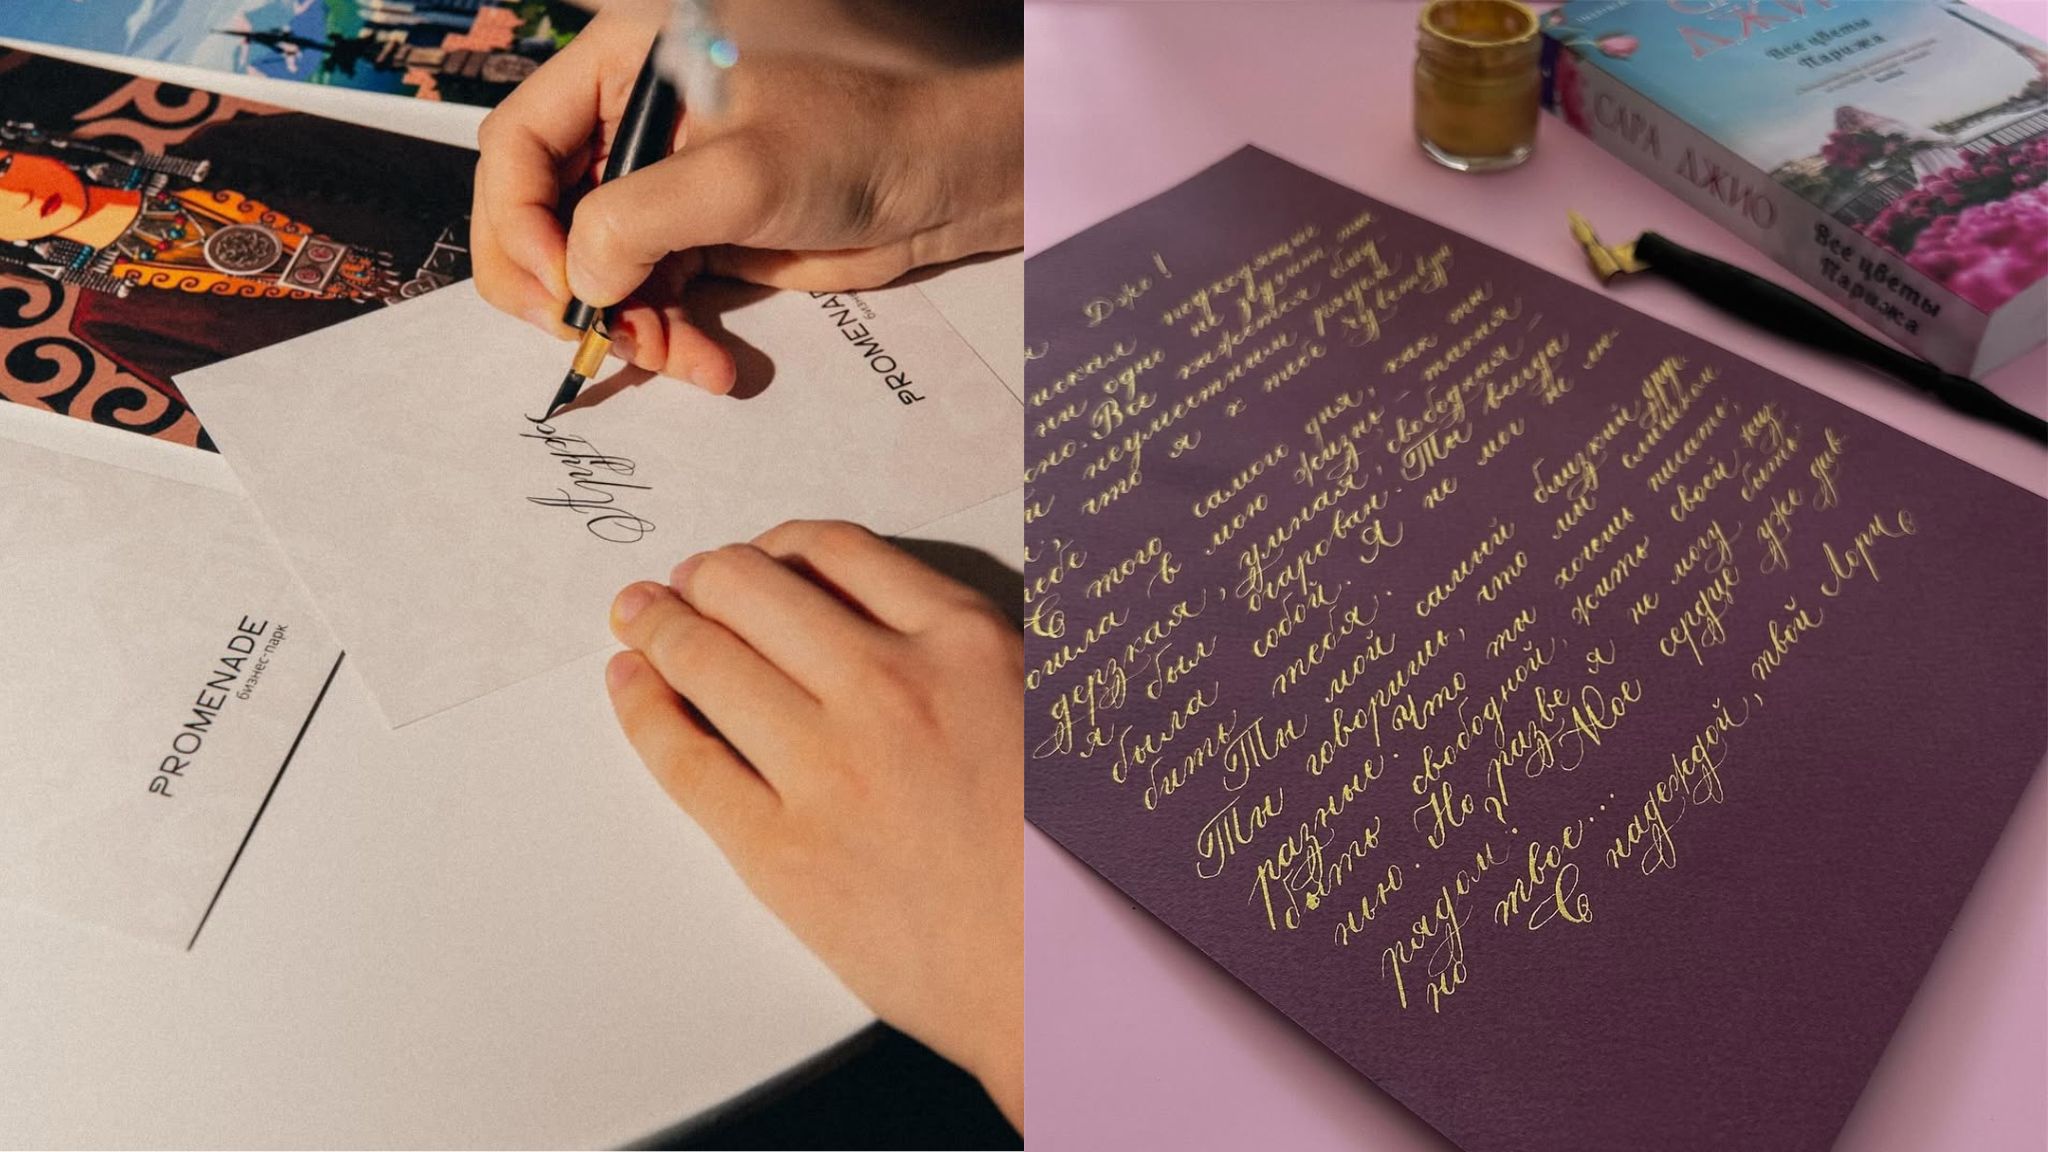 PROMENADE
бизнес-парк
PROMENA
бизне
Нура
САРА ДЖИО
Все цветы
Парижа
Все цветы
Парижа
Дже!
подходящие
искал
ни одно не
но. Все кажется
неуместным рядом
что я к тебе чувствую
С того самого дня, как ты
в мою жизнь – такая
дерзкая, умная, свободная –
я был очарован. Ты всегда
была собой. Я не мог не лю-
бить тебя.
Ты мой самый близкий друг.
Ты говоришь, что мы слишком
разные. Что ты хочешь писать,
быть свободной, жить своей жиз
нью. Но разве я не могу быть
рядом? Мое сердце уже дав
но твое...
С надеждой, твой Лори